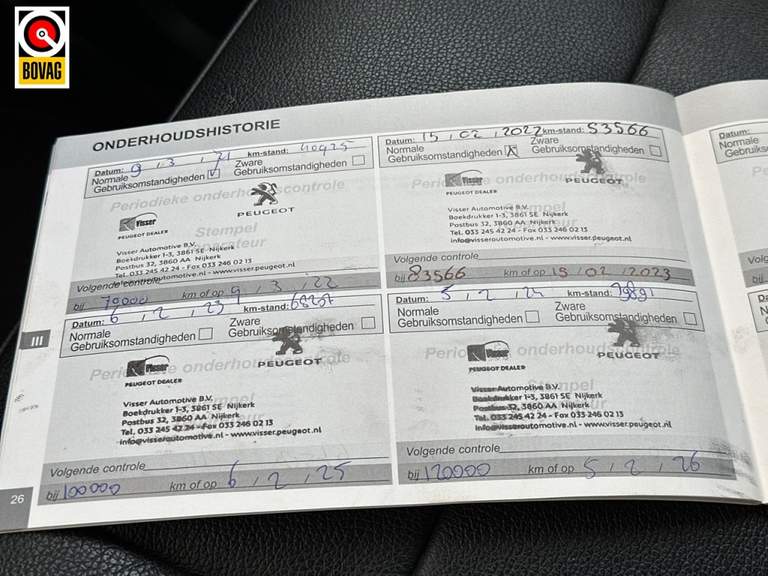 BOVAG
ONDERHOUDSHISTORIE
Datum: 9 , 3 , 21 km-stand: 40925
Normale Gebruiksomstandigheden
Zware Gebruiksomstandigheden
Visser
PEUGEOT DEALER
PEUGEOT
Visser Automotive B.V.
Boekdrukker 1-3, 3861 SE Nijkerk
Postbus 32, 3860 AA Nijkerk
Tel. 033 245 42 24 - Fax 033 246 02 13
www.visser.peugeot.nl
Volgende controle
bij 70000 km of op 9 , 3 , 22
Datum: 15 , 02 , 2022 km-stand: 53566
Normale Gebruiksomstandigheden X
Zware Gebruiksomstandigheden
Periodieke onderhoudscontrole
Visser
PEUGEOT DEALER
PEUGEOT
Visser Automotive B.V.
Boekdrukker 1-3, 3861 SE Nijkerk
Postbus 32, 3860 AA Nijkerk
Tel. 033 245 42 24 - Fax 033 246 02 13
info@visserautomotive.nl - www.visser.peugeot.nl
Volgende controle
bij 83566 km of op 15 / 02 / 2023
III
Datum: 6 , 2 , 23 km-stand:
Normale Gebruiksomstandigheden
Zware Gebruiksomstandigheden
Visser
PEUGEOT DEALER
PEUGEOT
Visser Automotive B.V.
Boekdrukker 1-3, 3861 SE Nijkerk
Postbus 32, 3860 AA Nijkerk
Tel. 033 245 42 24 - Fax 033 246 02 13
info@visserautomotive.nl - www.visser.peugeot.nl
Volgende controle
bij 100000 km of op 6 , 2 , 25
Datum: 5 , 2 , 24 km-stand:
Normale Gebruiksomstandigheden
Zware Gebruiksomstandigheden
Visser
PEUGEOT DEALER
PEUGEOT
Visser Automotive B.V.
Boekdrukker 1-3, 3861 SE Nijkerk
Postbus 32, 3860 AA Nijkerk
Tel. 033 245 42 24 - Fax 033 246 02 13
info@visserautomotive.nl - www.visser.peugeot.nl
Volgende controle
bij 120000 km of op 5 , 2 , 26
26